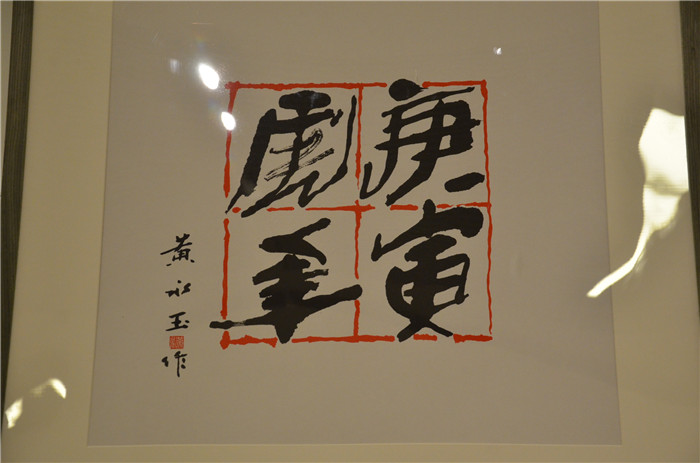 庚寅
虎年
黄永玉作